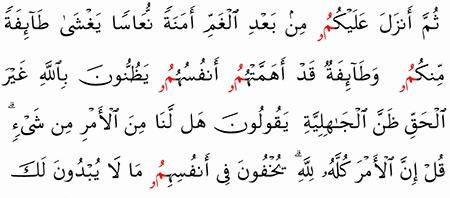 ثُمَّ أَنزَلَ عَلَيْكُمُۥ مِنۢ بَعْدِ ٱلْغَمِّ أَمَنَةً نُّعَاسًا يَغْشَىٰ طَآئِفَةً
مِّنكُمُۥ وَطَآئِفَةٌ قَدْ أَهَمَّتْهُمُۥ أَنفُسُهُمُۥ يَظُنُّونَ بِٱللَّهِ غَيْرَ
ٱلْحَقِّ ظَنَّ ٱلْجَٰهِلِيَّةِ يَقُولُونَ هَل لَّنَا مِنَ ٱلْأَمْرِ مِن شَىْءٍ ۗ
قُلْ إِنَّ ٱلْأَمْرَ كُلَّهُۥ لِلَّهِ ۗ يُخْفُونَ فِىٓ أَنفُسِهِمُۥ مَا لَا يُبْدُونَ لَكَ